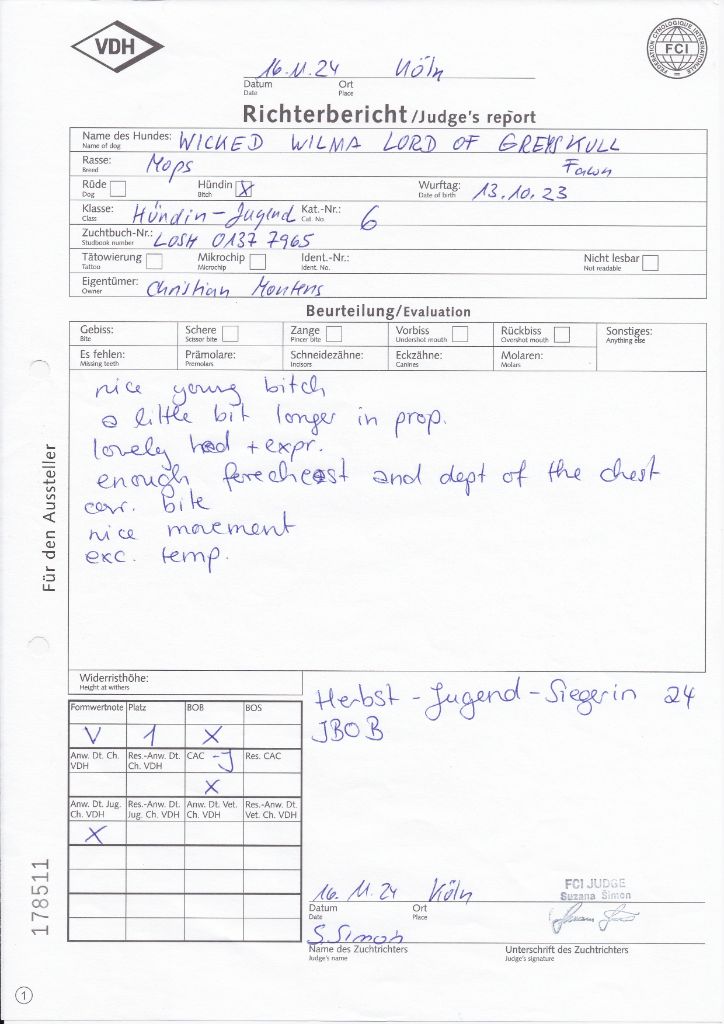 VDH
FEDERATION CYNOLOGIQUE INTERNATIONALE
FCI
16.11.24 Köln
Datum Ort
Date Place
Richterbericht /Judge's report
Name des Hundes: WICKED WILMA LORD OF GREYSKULL
Name of dog
Rasse: Mops Fawn
Breed
Rüde Hündin X Wurftag: 13.10.23
Dog Bitch Date of birth
Klasse: Hündin-Jugend Kat.-Nr.: 6
Class Cat. No.
Zuchtbuch-Nr.: LOSH 0137 7965
Studbook number
Tätowierung Mikrochip Ident.-Nr.: Nicht lesbar
Tattoo Microchip Ident. No. Not readable
Eigentümer: Christian
Owner
Beurteilung/Evaluation
Gebiss: Schere Zange Vorbiss Rückbiss Sonstiges:
Bite Scissor bite Pincer bite Undershot mouth Overshot mouth Anything else
Es fehlen: Prämolare: Schneidezähne: Eckzähne: Molaren:
Missing teeth Premolars Incisors Canines Molars
nice young bitch
a little bit longer in prop.
lovely head + expr.
enough forechest and dept of the chest
corr. bite
nice movement
exc. temp.
Für den Aussteller
Widerristhöhe:
Height at withers
Herbst-Jugend-Siegerin 24
JBOB
Formwertnote Platz BOB BOS
V 1 X
Anw. Dt. Ch. VDH Res.-Anw. Dt. Ch. VDH CAC -J Res. CAC
X
Anw. Dt. Jug. Ch. VDH Res.-Anw. Dt. Jug. Ch. VDH Anw. Dt. Vet. Ch. VDH Res.-Anw. Dt. Vet. Ch. VDH
X
178511
16.11.24 Köln
FCI JUDGE
Suzana Simon
Datum Ort
Date Place
S. Simon
Name des Zuchtrichters Unterschrift des Zuchtrichters
Judge's name Judge's signature
1